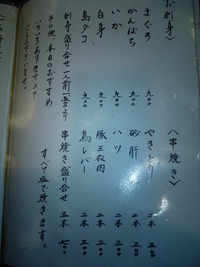 お刺身〉
まぐろ 九〇〇
かんぱち 九〇〇
いか 九〇〇
白身 九〇〇
島タコ 九〇〇
刺身盛り合せ 一人前
その他 本日のおすすめ
いろいろありますので
〈串焼き〉
やきとり 二本 三〇〇
砂肝 二本 三〇〇
ハツ 二本 三〇〇
豚三枚肉 二本
鳥レバー 二本
串焼き盛り合せ 五本 七〇〇
すべて塩で焼きます。